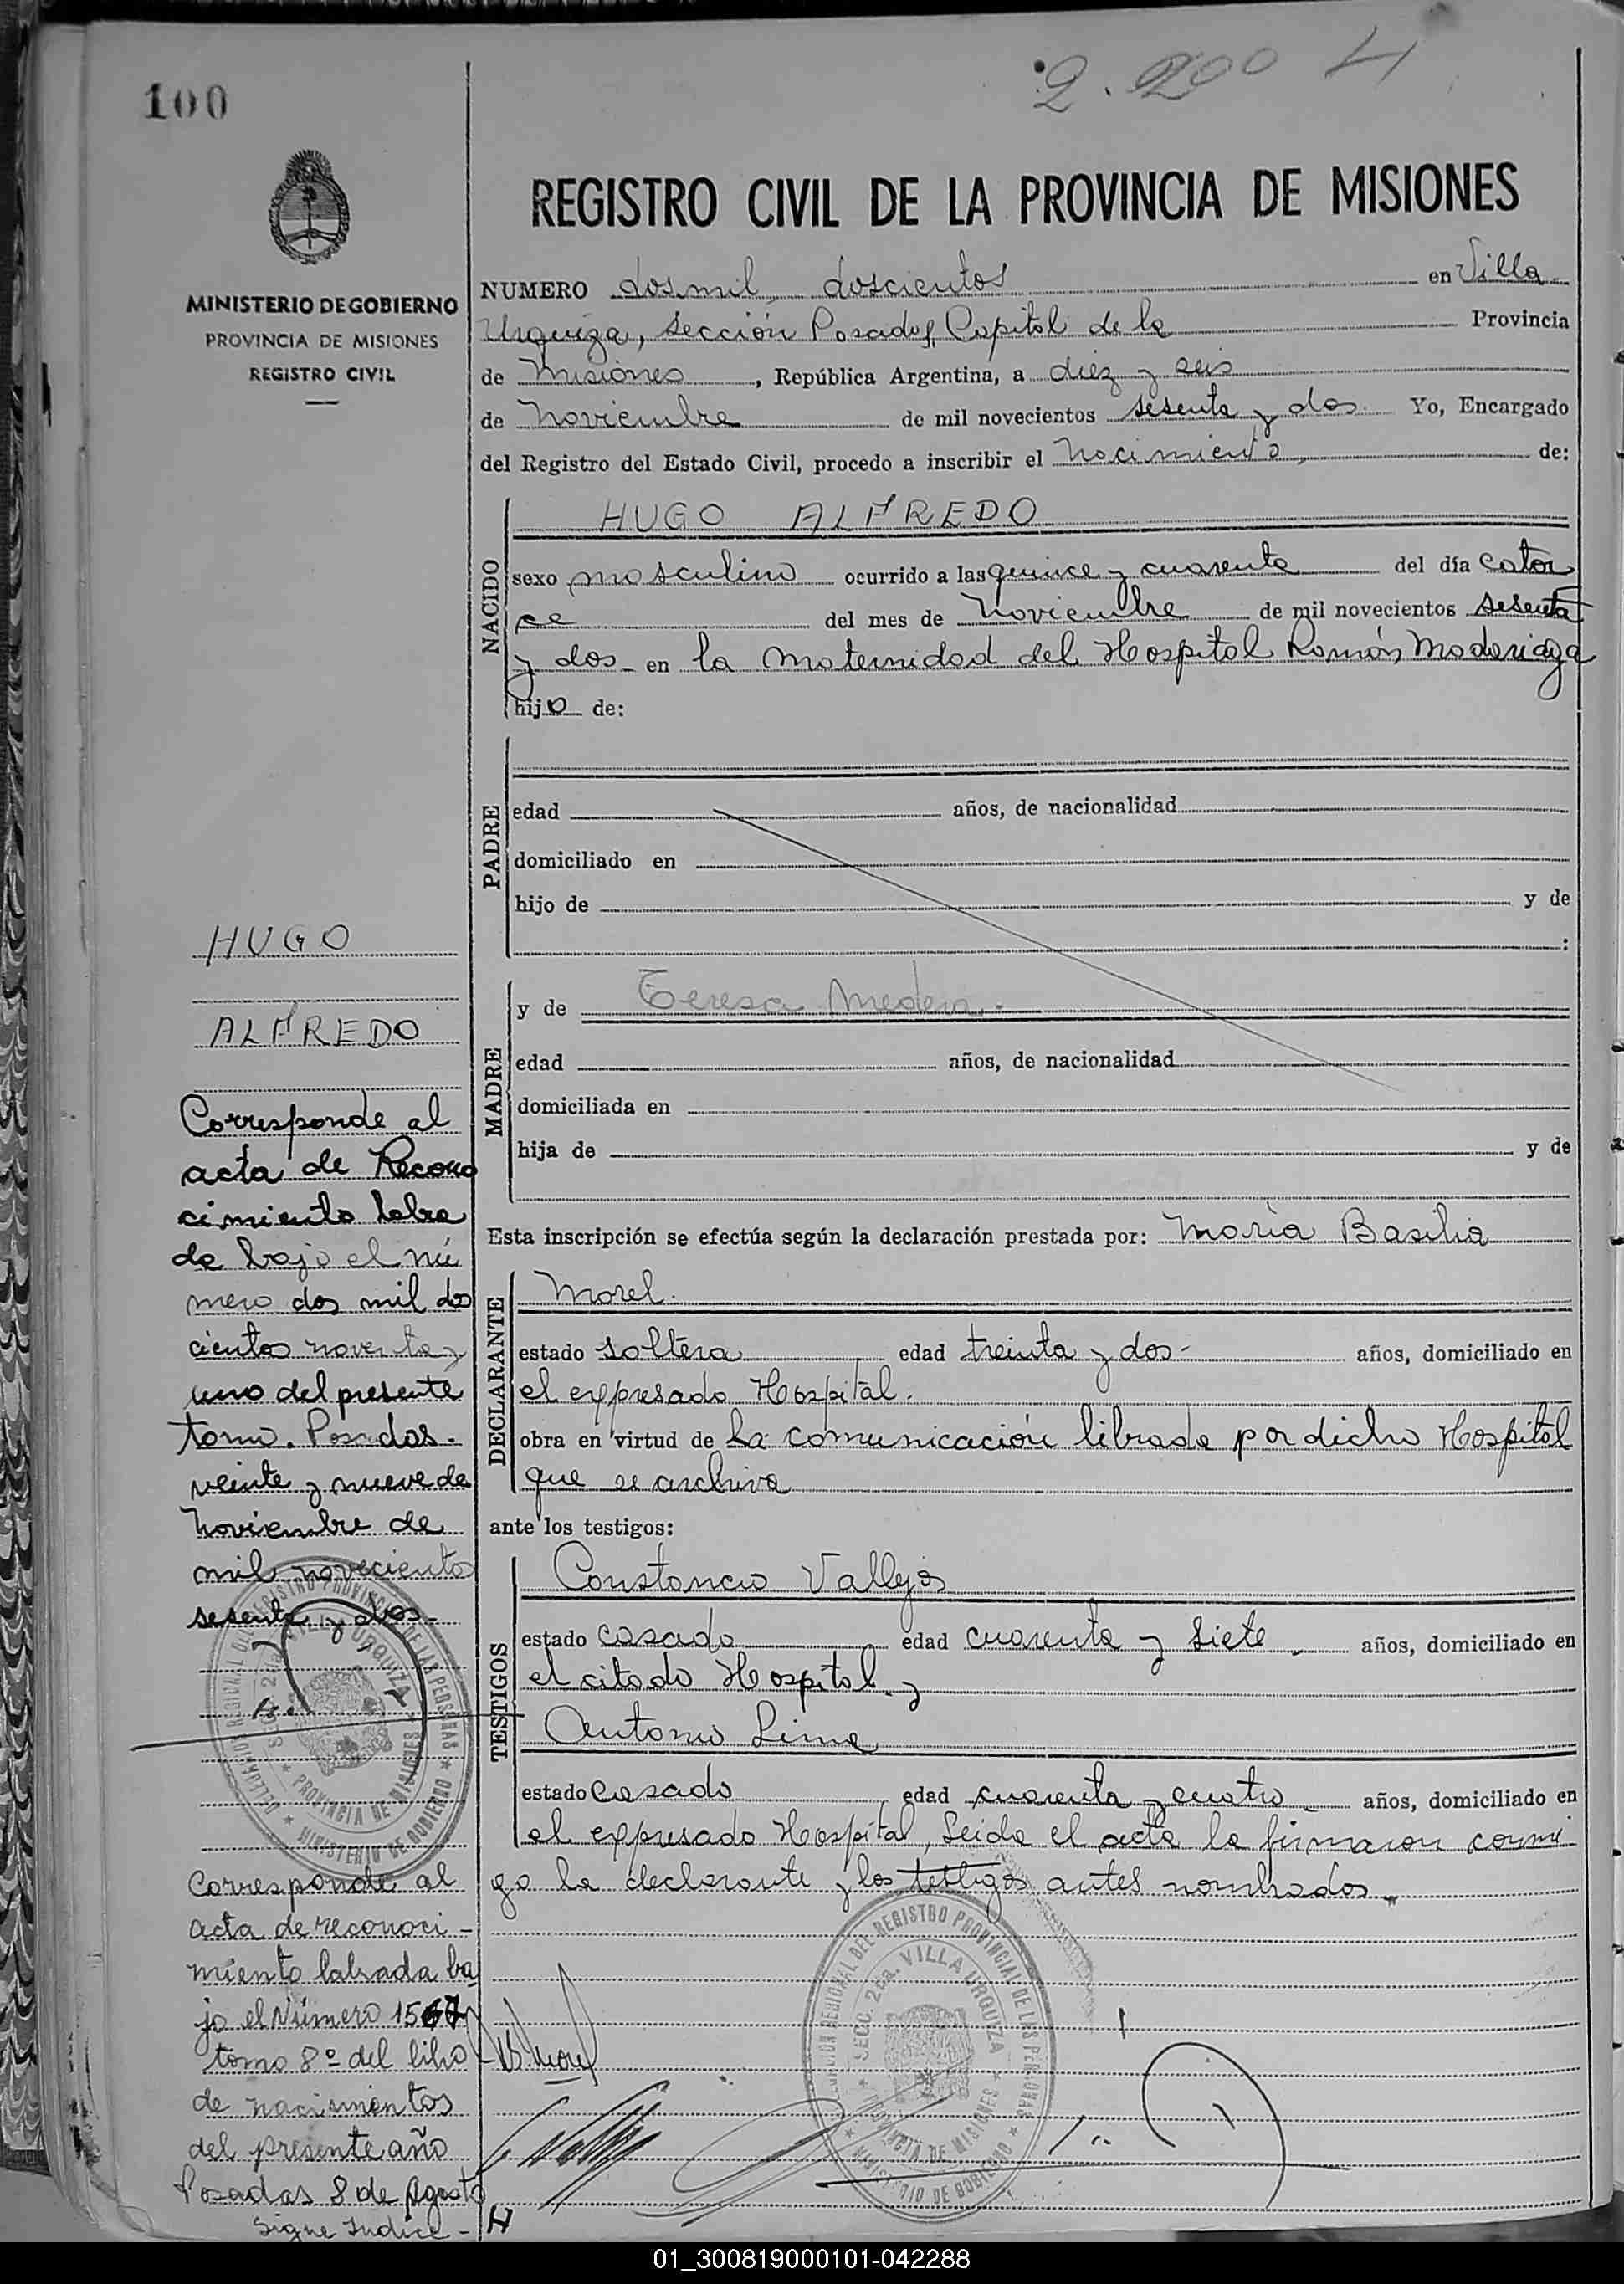 2.200 H
100
REGISTRO CIVIL DE LA PROVINCIA DE MISIONES
MINISTERIO DE GOBIERNO
PROVINCIA DE MISIONES
REGISTRO CIVIL
NUMERO dos mil doscientos en Villa
Urquiza, sección Posadas, Capital de la Provincia
de Misiones, República Argentina, a diez y seis
de Noviembre de mil novecientos sesenta y dos. Yo, Encargado
del Registro del Estado Civil, procedo a inscribir el Nacimiento, de:
NACIDO
HUGO ALFREDO
sexo masculino ocurrido a las quince y cuarenta del día cator
ce del mes de Noviembre de mil novecientos sesenta
y dos en la Maternidad del Hospital Ramón Madariaga
hijo de:
PADRE
edad años, de nacionalidad
domiciliado en
hijo de y de
:
MADRE
y de Teresa Medera.-
edad años, de nacionalidad
domiciliada en
hija de y de
Esta inscripción se efectúa según la declaración prestada por: María Basilia
DECLARANTE
Morel.
estado soltera edad treinta y dos- años, domiciliado en
el expresado Hospital.
obra en virtud de la comunicación librada por dicho Hospital
que se archiva
ante los testigos:
TESTIGOS
Constancio Vallejos
estado casado edad cuarenta y siete años, domiciliado en
el citado Hospital y
Antonio Lima
estado casado edad cuarenta y cuatro años, domiciliado en
el expresado Hospital, Leida el acta la firmaron conmi-
go la declarante y los testigos antes nombrados.
HUGO
ALFREDO
Corresponde al
acta de Recono
cimiento labra
da bajo el nú
mero dos mil dos
cientos noventa y
uno del presente
tomo. Posadas.
veinte y nueve de
Noviembre de
mil novecientos
sesenta y dos.-
DELEGACION REGIONAL DEL REGISTRO PROVINCIAL DE LAS PERSONAS
SECC. 2da. VILLA URQUIZA
PROVINCIA DE MISIONES
MINISTERIO DE GOBIERNO
Corresponde al
acta de reconoci-
miento labrada ba
jo el Número 1567
tomo 8º del libro
de nacimientos
del presente año
Posadas 8 de Agosto
Sigue Indice - H
B. Morel
DELEGACION REGIONAL DEL REGISTRO PROVINCIAL DE LAS PERSONAS
SECC. 2da. VILLA URQUIZA
PROVINCIA DE MISIONES
MINISTERIO DE GOBIERNO
01_300819000101-042288